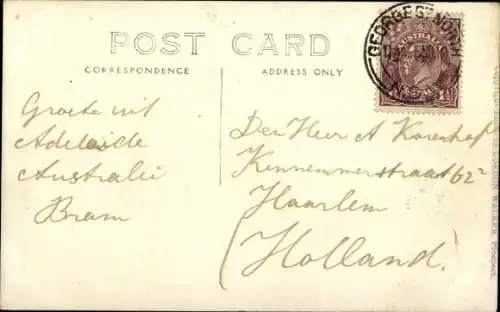 POST CARD
CORRESPONDENCE
ADDRESS ONLY
GEORGE ST NORTH
AUSTRALIA
Groete uit
Adelaide
Australië
Bram
Den Heer A Korenhof
Kennemerstraat 62²
Haarlem
(Holland)